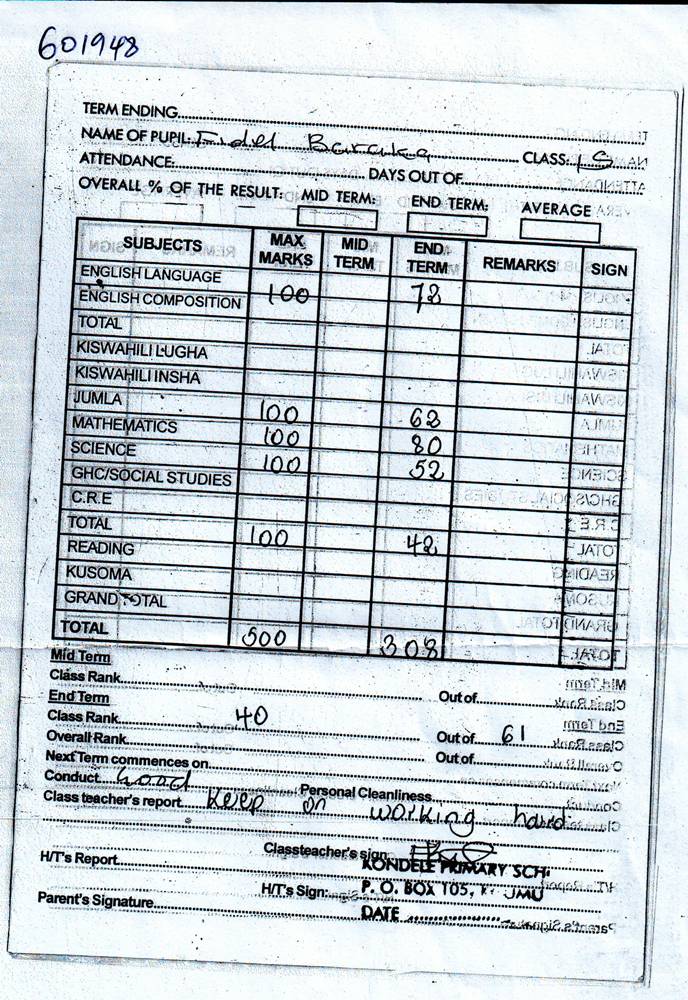 601948
TERM ENDING
NAME OF PUPIL: Fidel Baraka CLASS: 1 S
ATTENDANCE: DAYS OUT OF
OVERALL % OF THE RESULT: MID TERM: END TERM: AVERAGE
SUBJECTS MAX MARKS MID TERM END TERM REMARKS SIGN
ENGLISH LANGUAGE
ENGLISH COMPOSITION 100 72
TOTAL
KISWAHILI LUGHA
KISWAHILI INSHA
JUMLA 100 62
MATHEMATICS 100 80
SCIENCE 100 52
GHC/SOCIAL STUDIES
C.R.E
TOTAL 100 42
READING
KUSOMA
GRAND TOTAL
TOTAL 500 308
Mid Term
Class Rank Out of
End Term
Class Rank 40 Out of 61
Overall Rank Out of
Next Term commences on
Conduct Good Personal Cleanliness
Class teacher's report Keep on working hard
Classteacher's sign
H/T's Report KONDELE PRIMARY SCH
H/T's Sign: P. O. BOX 105,
Parent's Signature DATE